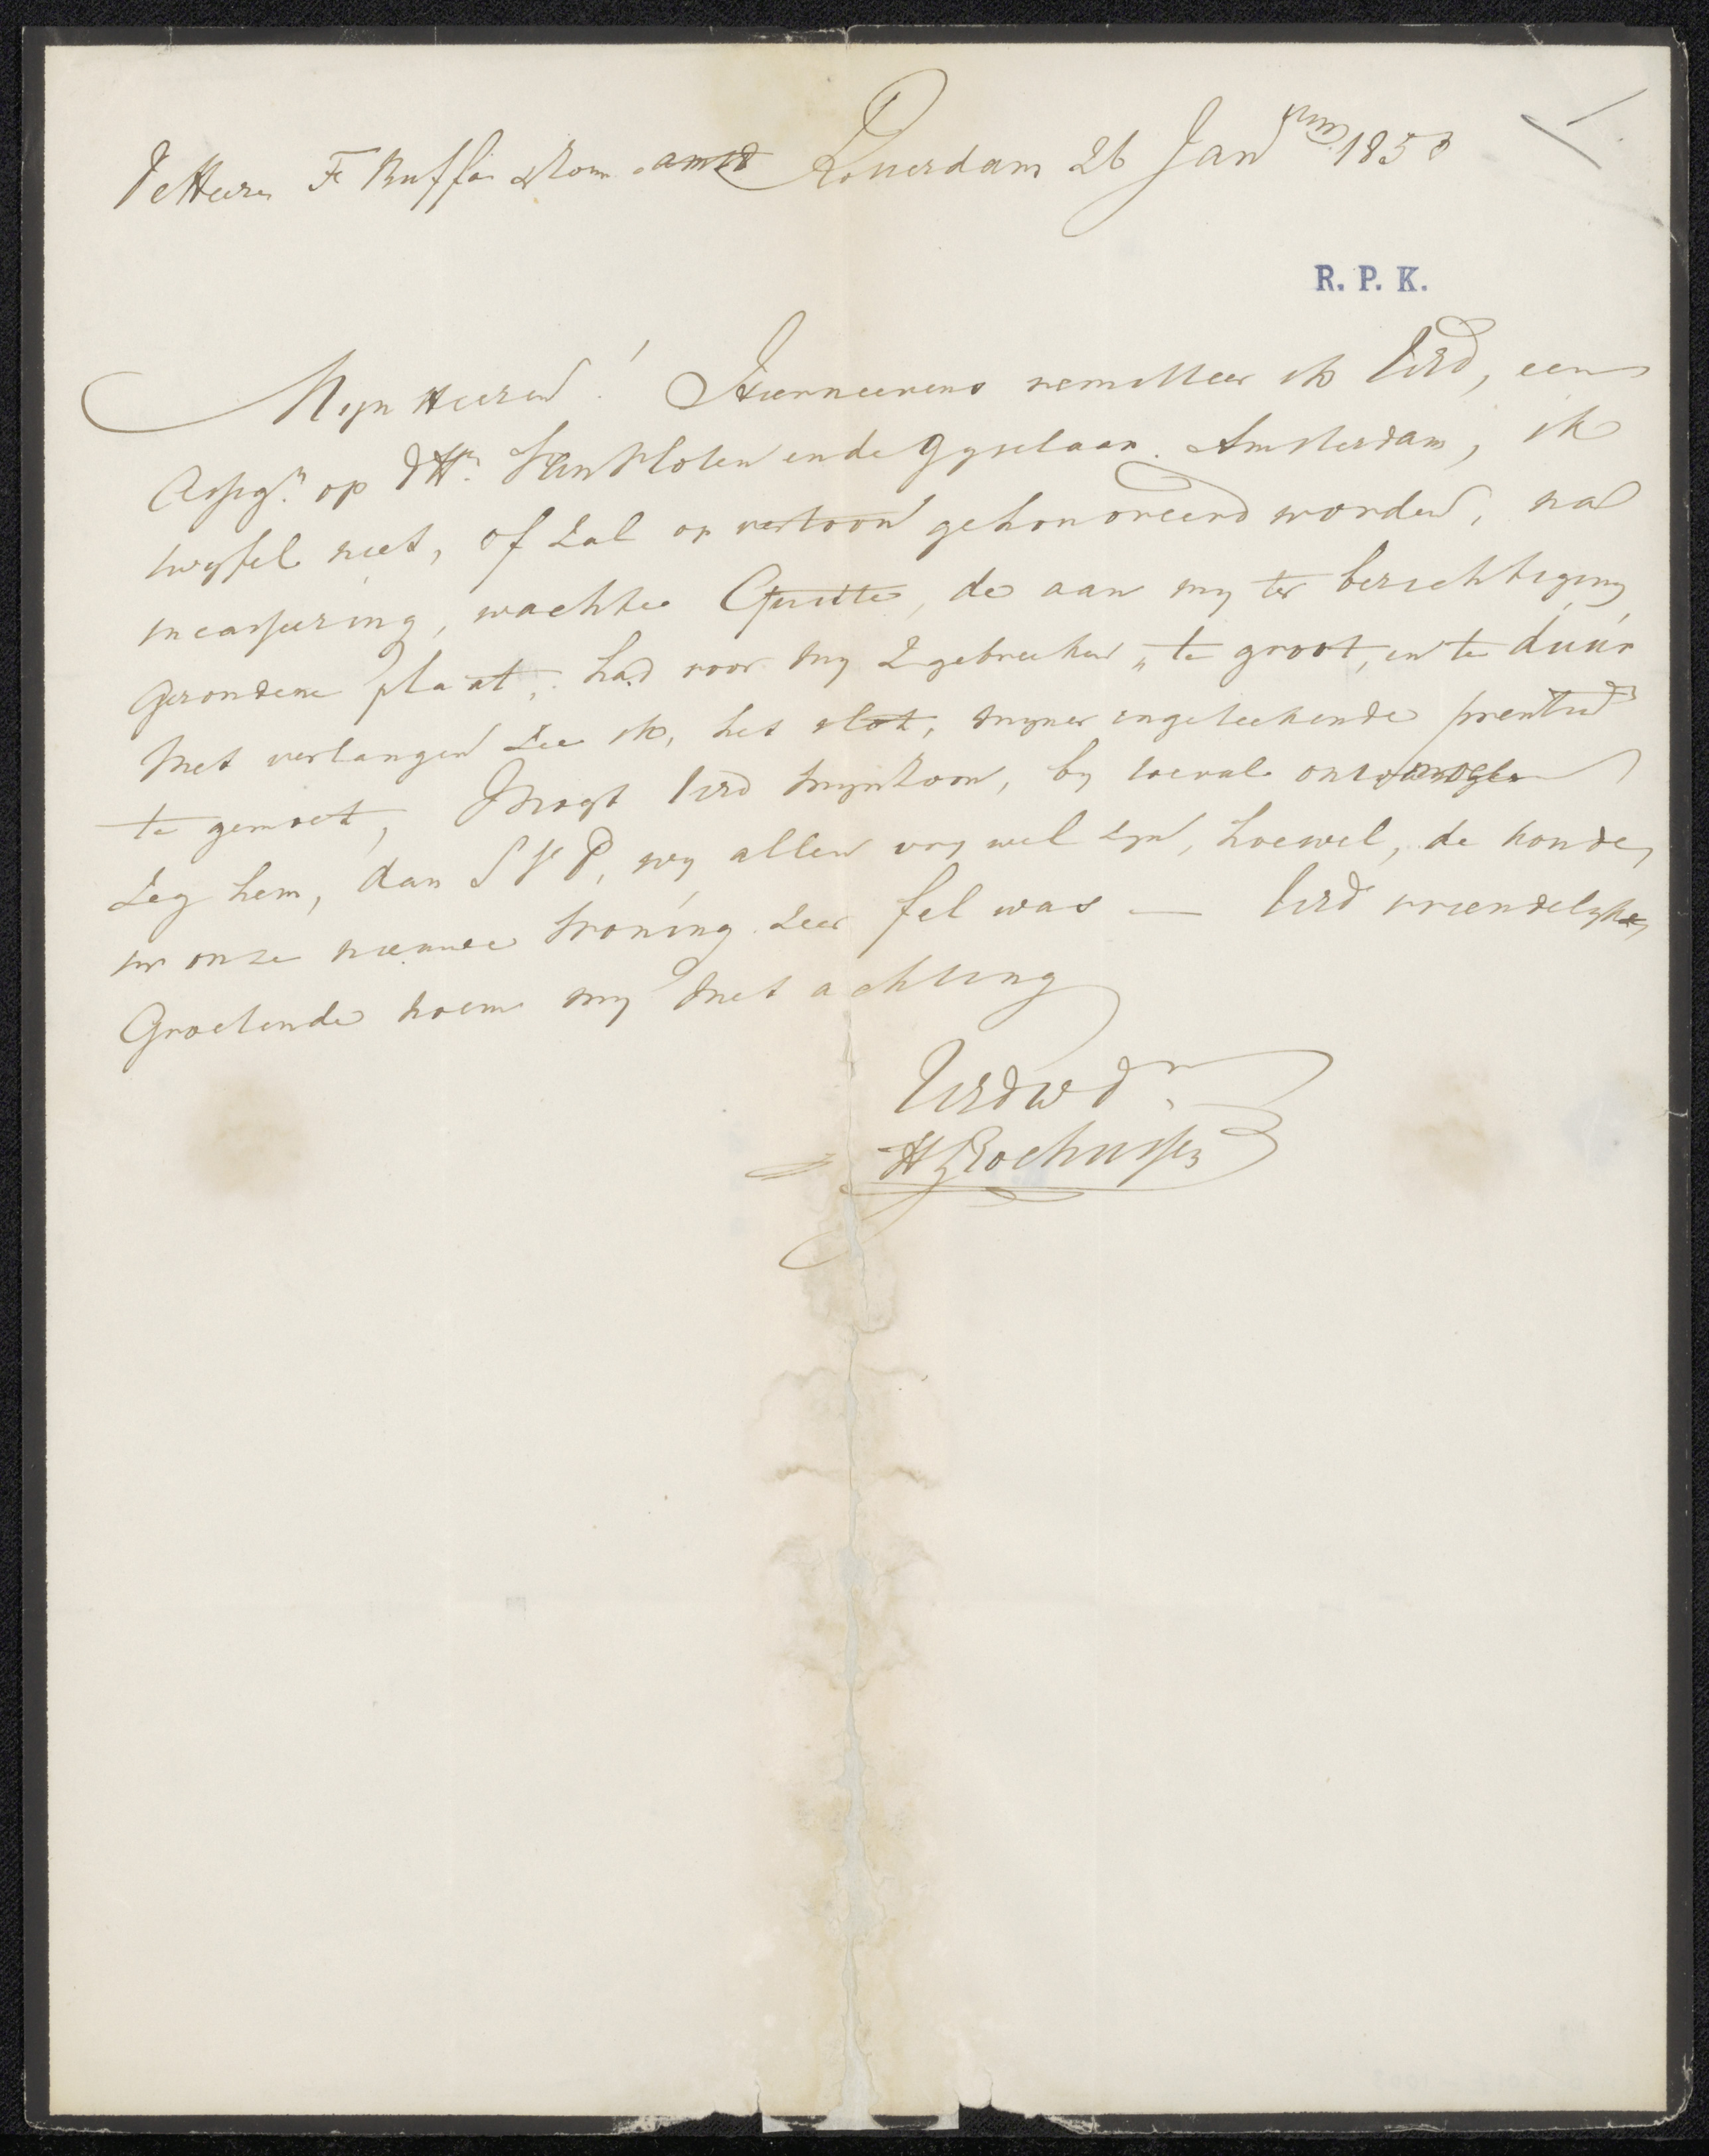 De Heeren F Buffa & Zonen amst Rotterdam 26 Jan 1858
R. P. K.
Mijn Heeren! Hierneevens remitteer ik UEd, een
Assign. op d Hn Van Vloten en de Gyselaar. Amsterdam, ik
twyfel niet, of zal op vertoon gehonoreerd worden, na
incasseering, wachte Quitte, de aan my ter berichtiging
gezondene plaat, had voor my 2 gebreeken „te groot, en te duur
Met verlangen zie ik, het slot, myner ingeteekende prenten
te gemoet, Mogt UEd mynzoon, by toeval
zeg hem, dan S V P, wy allen vry wel zyn, hoewel, de koude,
in onze nieuwe woning zeer fel was — UEd vriendelyke
Groetende noem my Met achting
UEdwd
H Rochussen